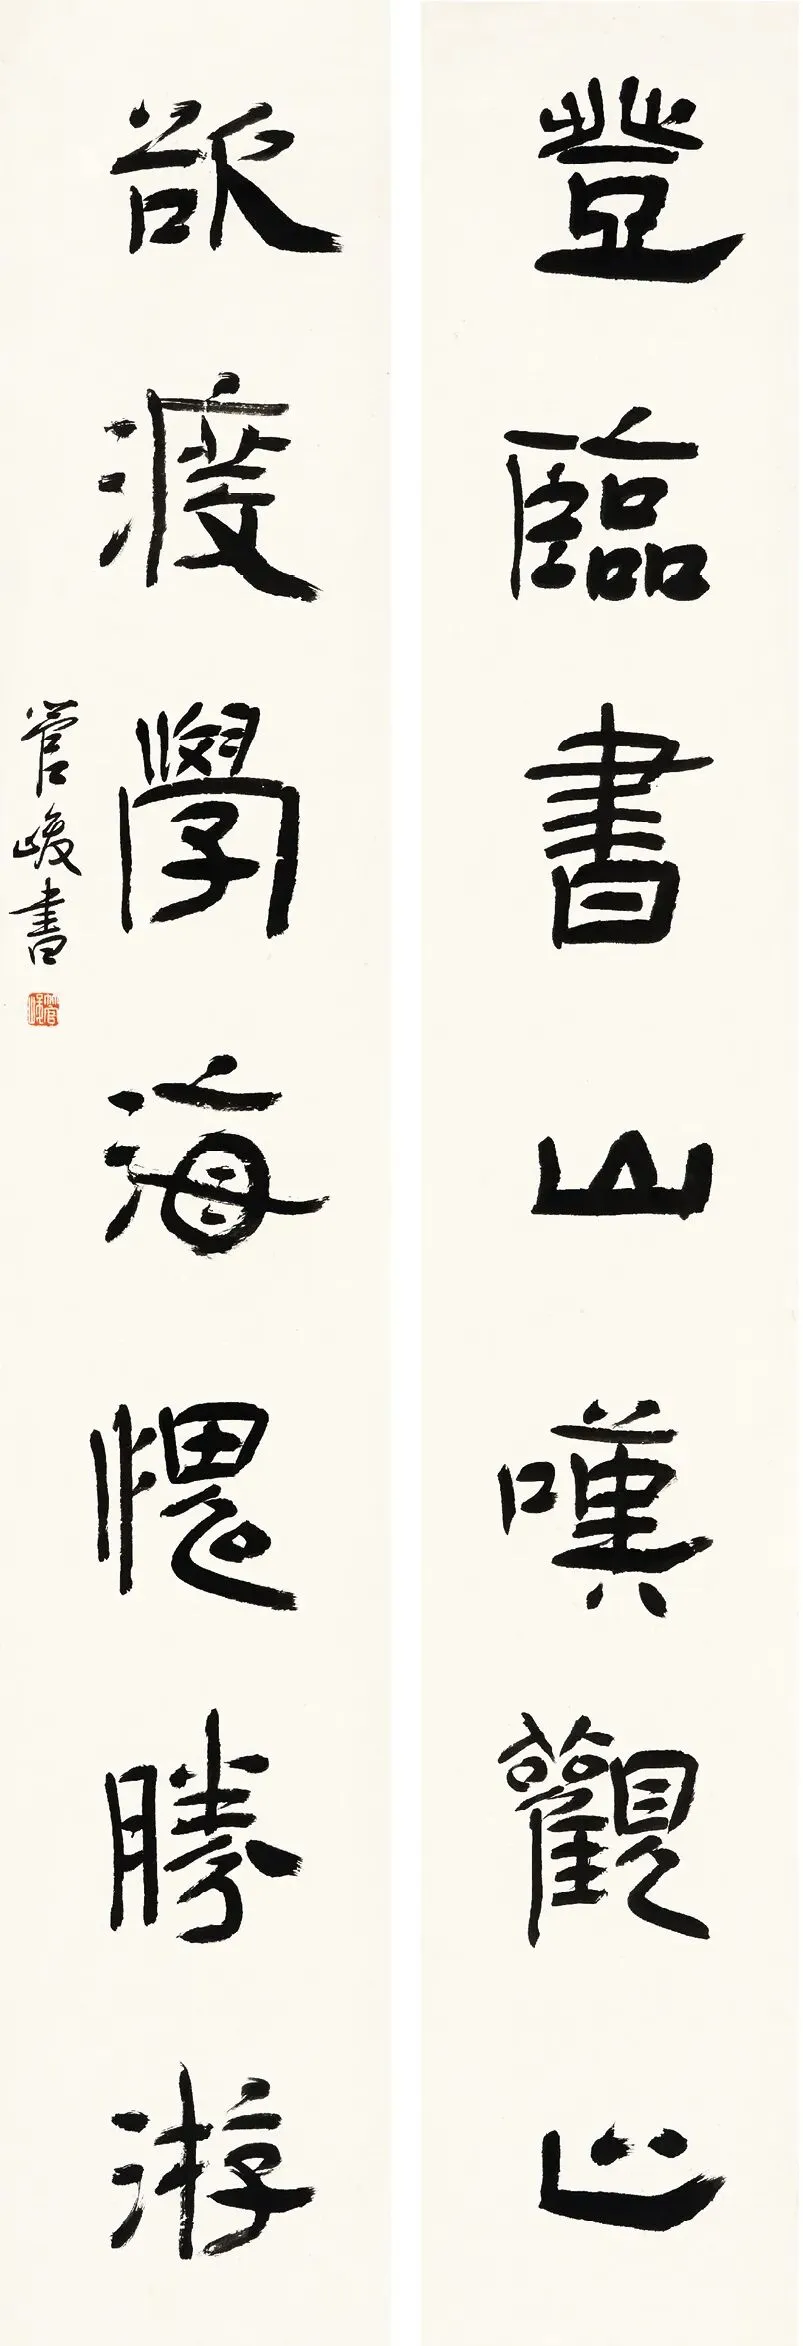 登臨書山嘆觀止
欲渡學海愧勝游
管峻書
管峻